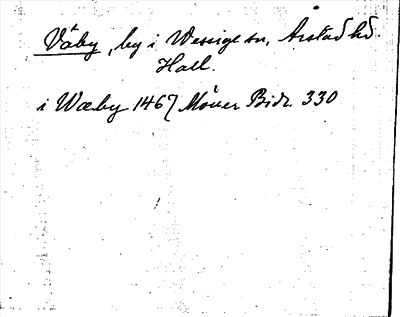 Våby, by i Wessige sn, Årstad hd.
Hall.
i Wæby 1467 Möller Bidr. 330